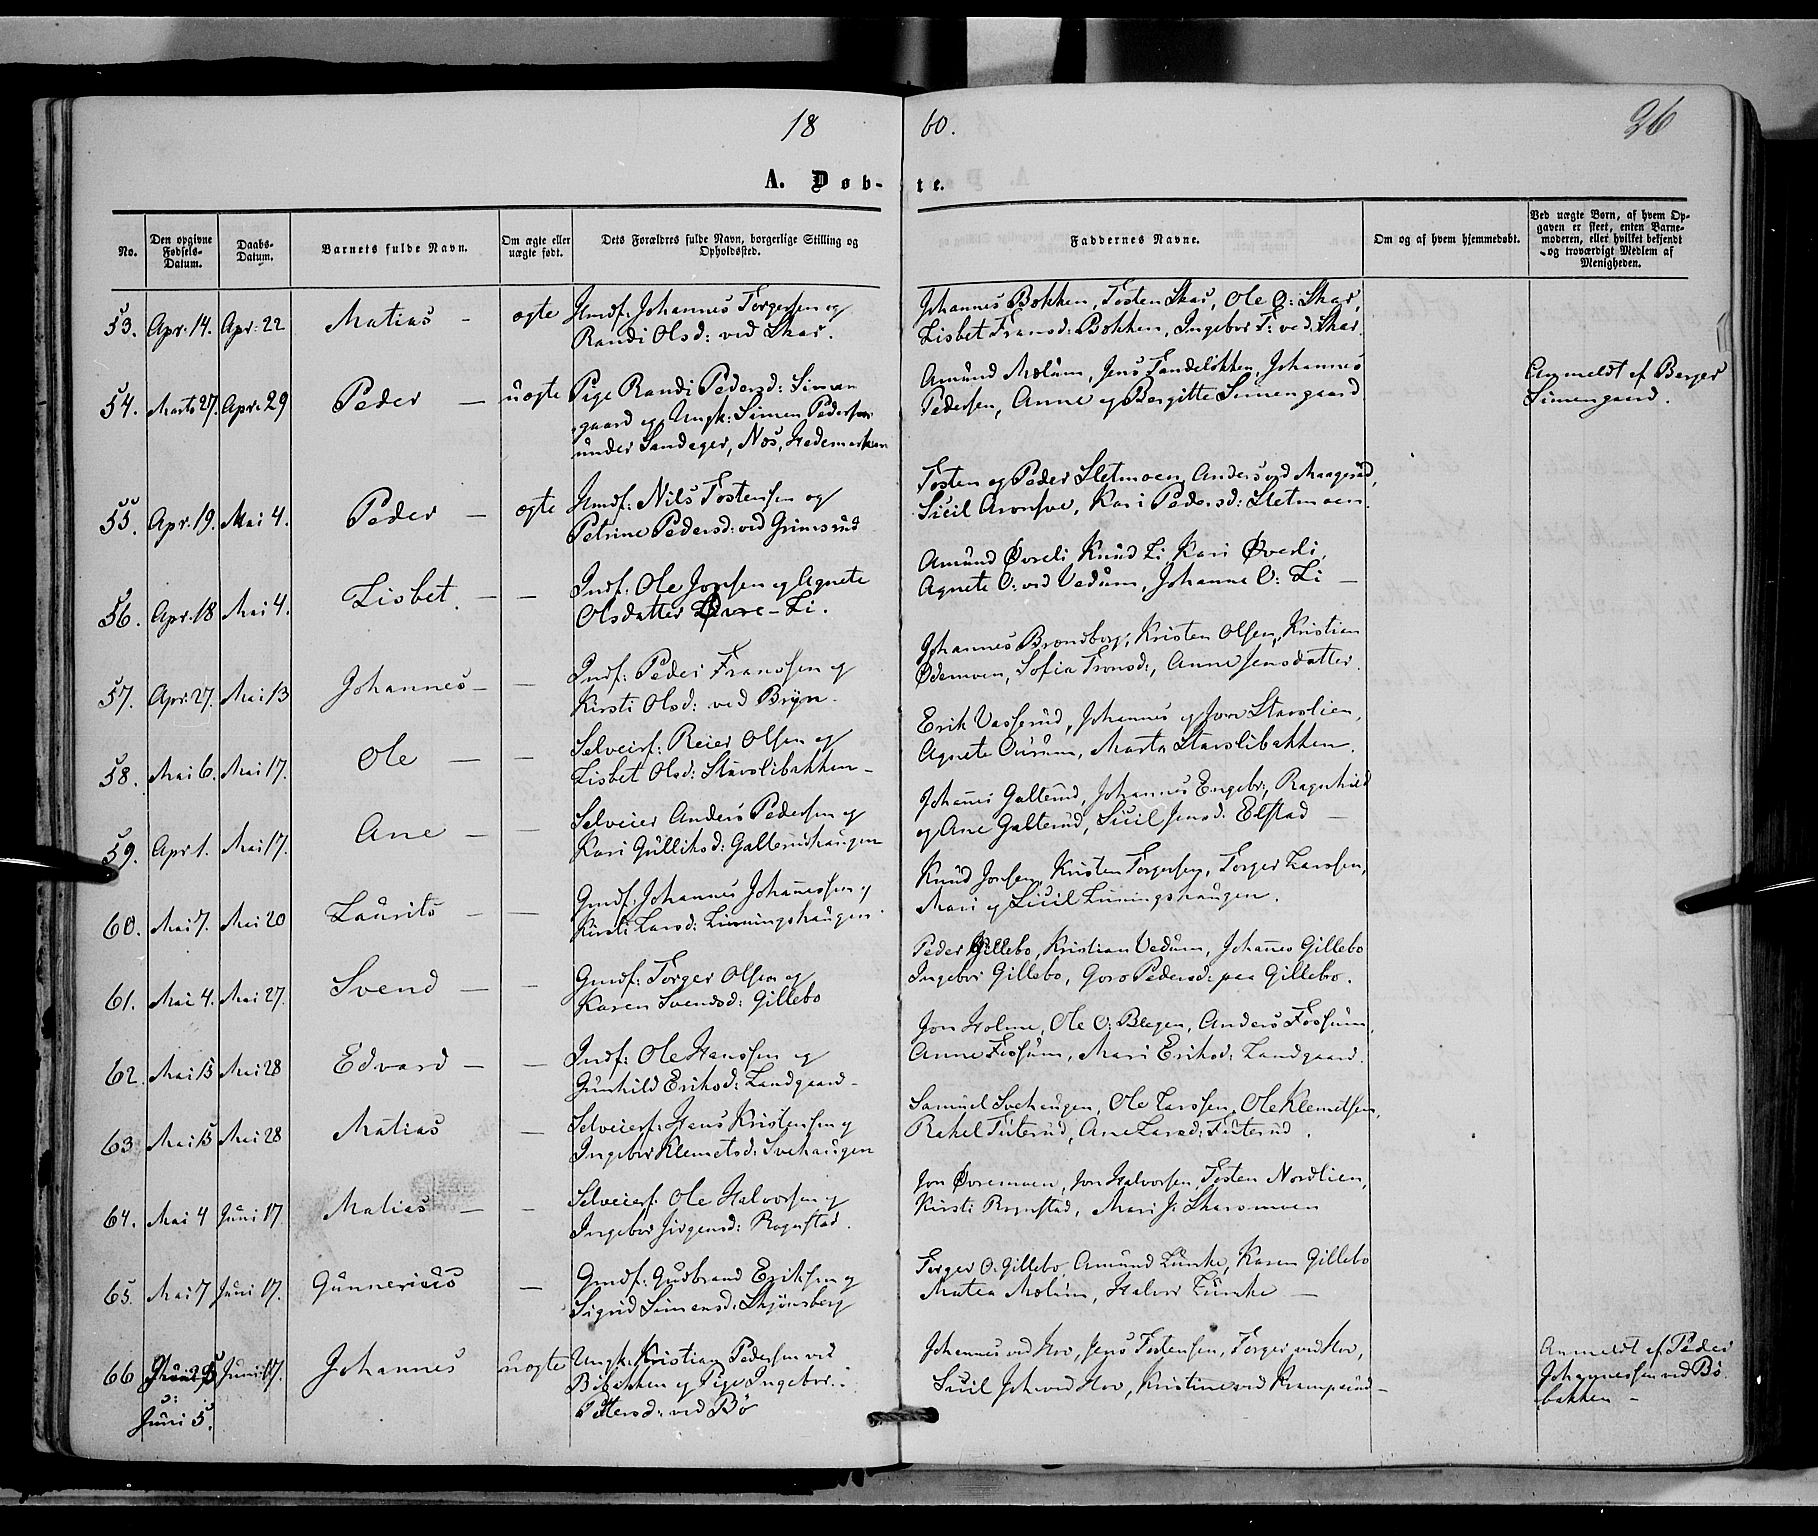 18 60. 26
A. Døb- te.
No.
Den opgivne Fødsels-Datum.
Daabs-Datum.
Barnets fulde Navn.
Om ægte eller uægte født.
Dets Forældres fulde Navn, borgerlige Stilling og Opholdssted.
Faddernes Navne.
Om og af hvem hjemmedøbt.
Ved uægte Børn, af hvem Opgaven er skeet, enten Barnemoderen, eller hvilket bekjendt og troværdigt Medlem af Menigheden.
53. Apr. 14. Apr. 22 Matias – ægte Hmdf: Johannes Torgersen og
Randi Olsd: ved Skar.
Johannes Bakken, Tosten Skar, Ole O: Skar,
Lisbet Fransd: Bakken, Ingebor T: ved Skar.
54. Marts 27. Apr. 29 Peder – uægte Pige Randi Pedersd: Simen
gaard og Ungk: Simen Pedersen
under Sandager, Næs, Hedemarken
Amund Mælum, Jens Sandeløkken, Johannes
Pedersen, Anne og Bergitte Simengaard
Anmeldt af Berger
Simengaard.
55. Apr. 19. Mai 4. Peder – ægte Hmdf: Nils Tostensen og
Petrine Pedersd: ved Grimsrud
Tosten og Peder Sletmoen, Anders ved Haagerud,
Sicil Aronsve, Kari Pedersd: Sletmoen.
56. Apr. 18 Mai 4. Lisbet. – – Indf: Ole Jonsen og Agnete
Olsdatter Øvre-Li.
Amund Øvreli, Knud Li, Kari Øvreli,
Agnete O: ved Vedum, Johanne O: Li –
57. Apr. 27. Mai 13 Johannes – – Indf: Peder Franssen og
Kirsti Olsd: ved Bryn.
Johannes Brændborg, Kristen Olsen, Kristian
Ødemoen, Sofia Fronsd:, Anne Jensdatter.
58. Mai 6. Mai 17. Ole – – Selveierf: Reier Olsen og
Lisbet Olsd: Stavslibakken –
Erik Vasserud, Johannes og Jon Stavslien,
Agnete Aurum, Marta Stavslibakken.
59. Apr 1. Mai 17. Ane – – Selveier Anders Pedersen og
Kari Gulliksd: Galterudhaugen
Johanes Galterud, Johannes Engebr:, Ragnhild
og Ane Galterud, Sicil Jensd: Elstad –
60. Mai 7. Mai 20 Laurits – – Gmdf: Johannes Johanessen og
Kirsti Larsd: Linningshaugen.
Knud Jonsen, Kristen Torgersen, Torger Larssen,
Mari og Sicil Linningshaugen.
61. Mai 4. Mai 27. Svend – – Gmdf: Torger Olsen og
Karen Svendsd: Gillebo
Peder Gillebo, Kristian Vedum, Johanes Gillebo
Ingebor Gillebo, Goro Pedersd: paa Gillebo.
62. Mai 13 Mai 28 Edvard – – Indf: Ole Hanssen og
Gunhild Eriksd: Landgaard –
Jon Holme, Ole O: Blegen, Anders Fossum,
Anne Fossum, Mari Eriksd: Landgaard.
63. Mai 13 Mai 28 Matias – Selveierf: Hans Kristensen og
Ingebor Klemetsd: Svehaugen
Samuel Svehaugen, Ole Larssen, Ole Klemetsen,
Rakel Futerud, Ane Larsd: Futerud.
64. Mai 4 Juni 17. Matias – – Selveierf: Ole Halvorsen og
Ingebor Jørgensd: Rognstad.
Jon Øvremoen, Jon Halvorsen, Tosten Nordlien,
Kirsti Rognstad, Mari J: Skarsmoen
65. Mai 7 Juni 17. Gunnerius – Gmdf: Gudbrand Eriksen og
Sigrid Simensd: Skjønsberg
Torger O. Gillebo, Amund Lunke, Karen Gillebo
Matea Mælum, Halvor Lunke –
66 Juni 17. Johannes uægte Ungk: Kristian Pedersen ved
Bibakken og Pige Ingebor
Petersd: ved Bø
Johannes ved Hov, Jens Tostensen, Torger ved Hov,
Sicil Joh: ved Hov, Kristine ved Kampesrud –
Anmeldt af Peder
Johannessen ved Bø
bakken –
ɔ:
Juni 5.